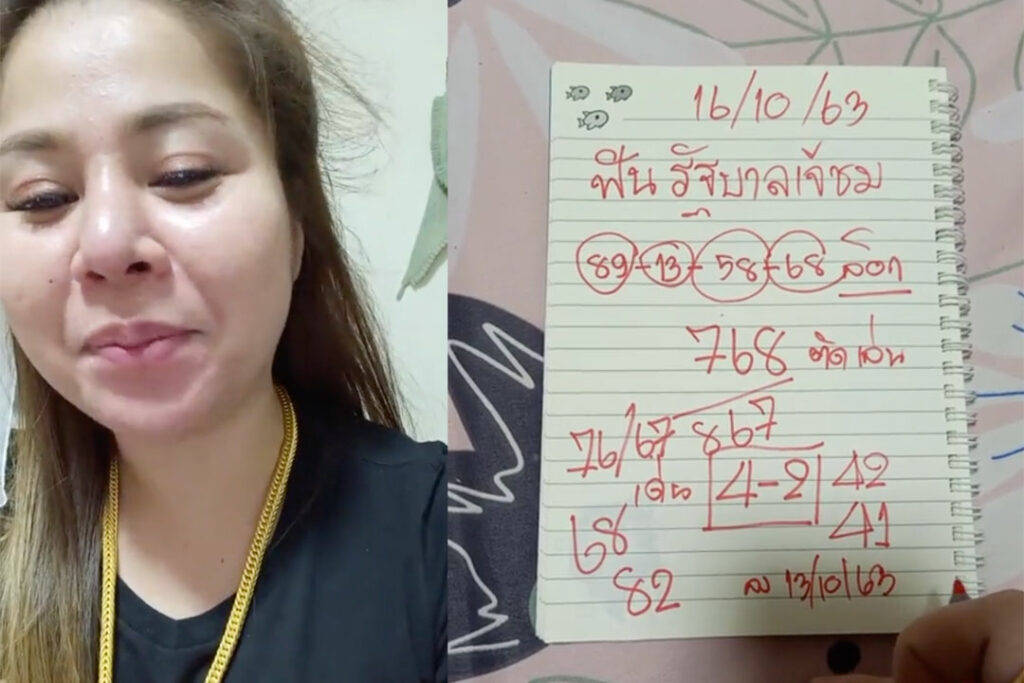 16/10/63
ฟันรัฐบาลเจ๊ชม
89-13-58-68 ล๊อก
768 ติดเล่น
76/67 867
เด่น 4-2 42
68 41
82 ลง 13/10/63